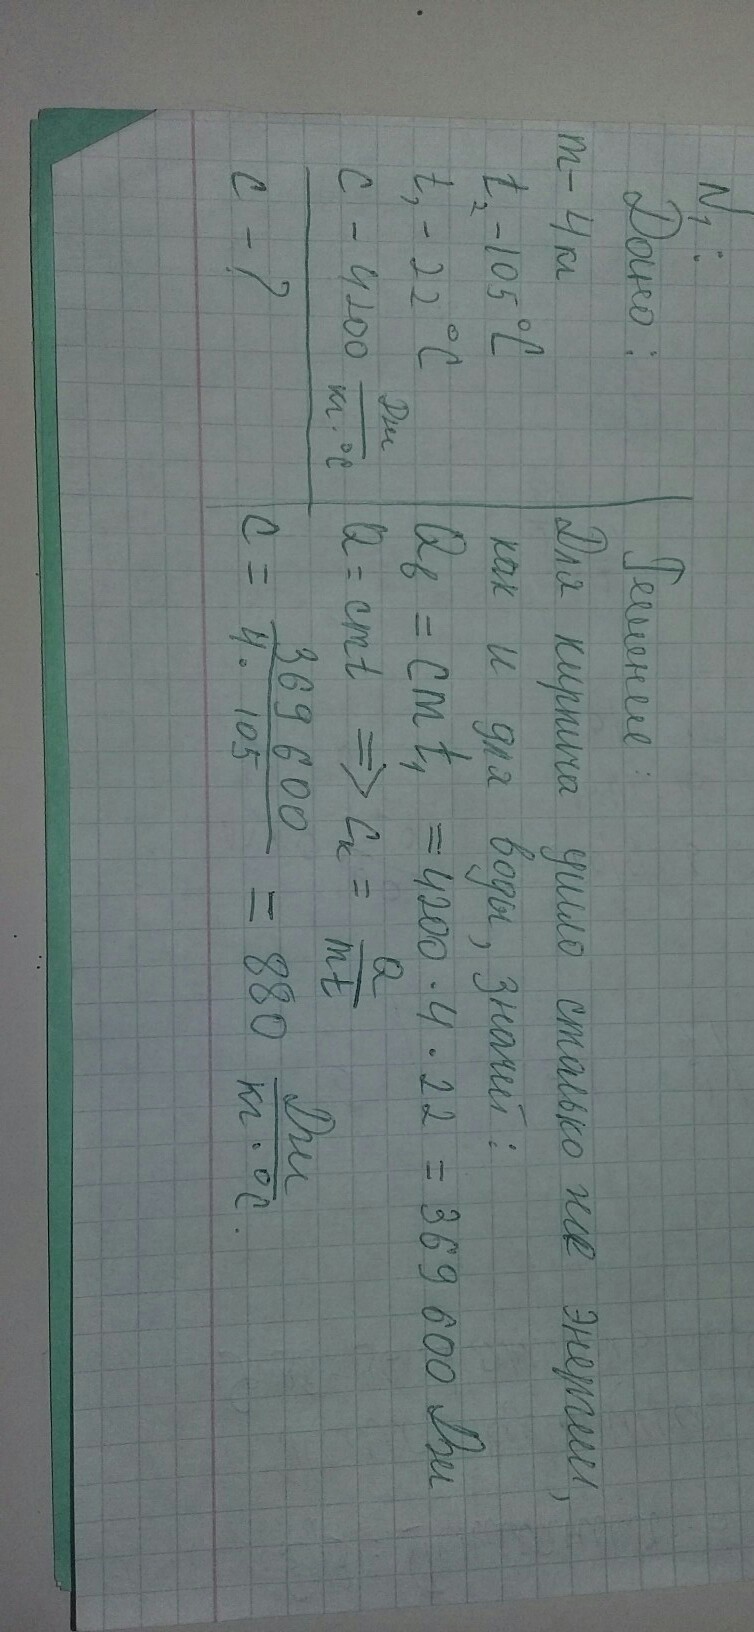 N1:
Дано:
m - 4 кг
t₂ - 105 °C
t₁ - 22 °C
c - 4200 Дж/кг·°C
c - ?
Решение:
Для кирпича ушло столько же энергии,
как и для воды, значит:
Qв = cmt₁ = 4200 · 4 · 22 = 369 600 Дж
Q = cmt => cк = Q/mt
c = 369 600/4 · 105 = 880 Дж/кг·°C.